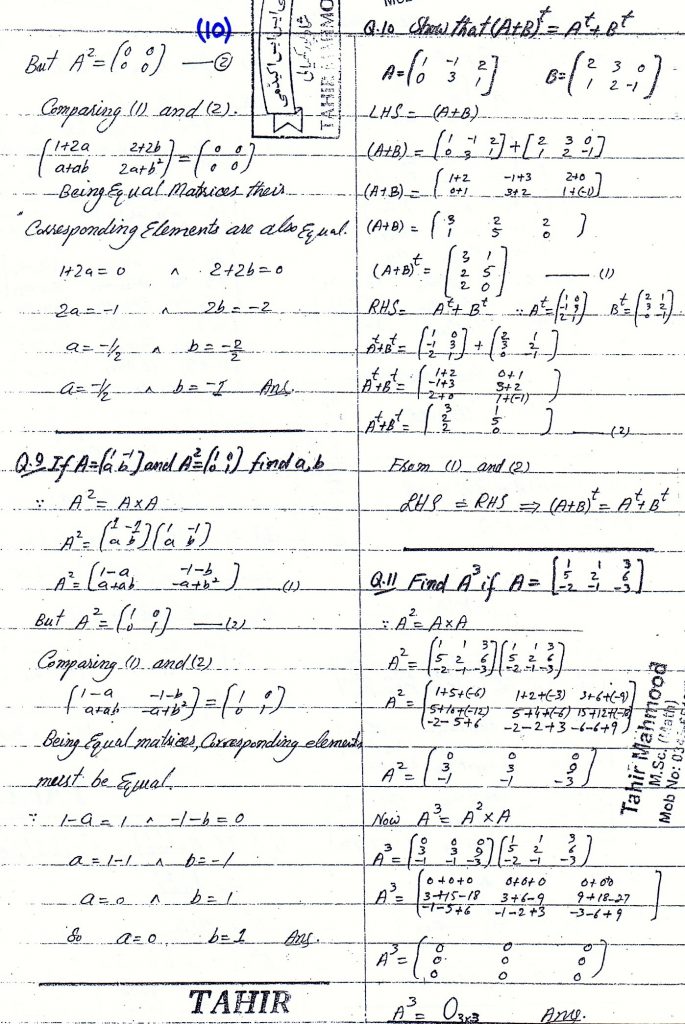 (10)
But A² = [0 0; 0 0] —②
Comparing (1) and (2).
[1+2a 2+2b; a+ab 2a+b²] = [0 0; 0 0]
Being Equal Matrices their
Corresponding Elements are also Equal.
1+2a = 0 ∧ 2+2b = 0
2a = -1 ∧ 2b = -2
a = -1/2 ∧ b = -2/2
a = -1/2 ∧ b = -1 Ans.
Q.9 If A = [1 -1; a b] and A² = [1 0; 0 1] find a, b
∵ A² = A×A
A² = [1 -1; a b][1 -1; a b]
A² = [1-a -1-b; a+ab -a+b²] —(1)
But A² = [1 0; 0 1] —(2)
Comparing (1) and (2)
[1-a -1-b; a+ab -a+b²] = [1 0; 0 1]
Being Equal matrices, Corresponding elements
must be Equal.
∵ 1-a = 1 ∧ -1-b = 0
a = 1-1 ∧ b = -1
a = 0 ∧ b = 1
So a = 0, b = 1 Ans.
TAHIR
Q.10 Show that (A+B)ᵗ = Aᵗ + Bᵗ
A = [1 -1 2; 0 3 1] B = [2 3 0; 1 2 -1]
LHS = (A+B)
(A+B) = [1 -1 2; 0 3 1] + [2 3 0; 1 2 -1]
(A+B) = [1+2 -1+3 2+0; 0+1 3+2 1+(-1)]
(A+B) = [3 2 2; 1 5 0]
(A+B)ᵗ = [3 1; 2 5; 2 0] —(1)
RHS = Aᵗ + Bᵗ ∵ Aᵗ = [1 0; -1 3; 2 1] Bᵗ = [2 1; 3 2; 0 -1]
Aᵗ+Bᵗ = [1 0; -1 3; 2 1] + [2 1; 3 2; 0 -1]
Aᵗ+Bᵗ = [1+2 0+1; -1+3 3+2; 2+0 1+(-1)]
Aᵗ+Bᵗ = [3 1; 2 5; 2 0] —(2)
From (1) and (2)
LHS = RHS ⇒ (A+B)ᵗ = Aᵗ + Bᵗ
Q.11 Find A³ if A = [1 1 3; 5 2 6; -2 -1 -3]
∵ A² = A×A
A² = [1 1 3; 5 2 6; -2 -1 -3][1 1 3; 5 2 6; -2 -1 -3]
A² = [1+5+(-6) 1+2+(-3) 3+6+(-9); 5+10+(-12) 5+4+(-6) 15+12+(-18); -2-5+6 -2-2+3 -6-6+9]
A² = [0 0 0; 3 3 9; -1 -1 -3]
Now A³ = A²×A
A³ = [0 0 0; 3 3 9; -1 -1 -3][1 1 3; 5 2 6; -2 -1 -3]
A³ = [0+0+0 0+0+0 0+0+0; 3+15-18 3+6-9 9+18-27; -1-5+6 -1-2+3 -3-6+9]
A³ = [0 0 0; 0 0 0; 0 0 0]
A³ = O₃ₓ₃ Ans.
Tahir Mahmood
M.Sc. (Math)
Mob No: